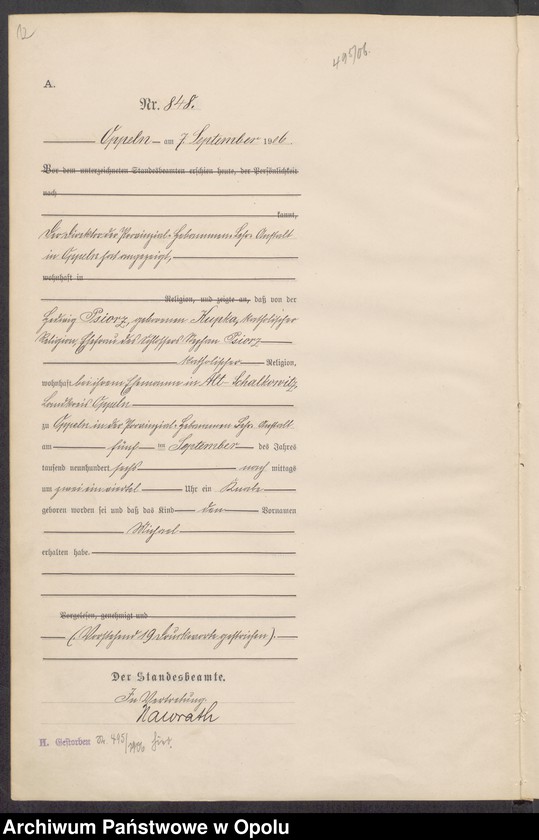 12
495/06.
A.
Nr. 848.
Oppeln am 7. September 1906.
Vor dem unterzeichneten Standesbeamten erschien heute, der Persönlichkeit
nach
kannt,
Der Direktor der Provinzial-Hebammen-Lehr-Anstalt
in Oppeln hat angezeigt,
wohnhaft in
Religion, und zeigte an, daß von der
Hedwig Psiorz, geborenen Kupka, katholischer
Religion, Ehefrau des Schlossers Stephan Psiorz
katholischer Religion,
wohnhaft bei ihrem Ehemanne in Alt-Schalkowitz,
Landkreis Oppeln
zu Oppeln in der Provinzial-Hebammen-Lehr-Anstalt
am fünf ten September des Jahres
tausend neunhundert sechs nach mittags
um zwei ein viertel Uhr ein Knabe
geboren worden sei und daß das Kind den Vornamen
Michael
erhalten habe.
Vorgelesen, genehmigt und
(Vorstehend 19 Druckworte gestrichen).
Der Standesbeamte.
In Vertretung.
Nawrath
H. Gestorben Nr. 495/1906 hier.
Archiwum Państwowe w Opolu